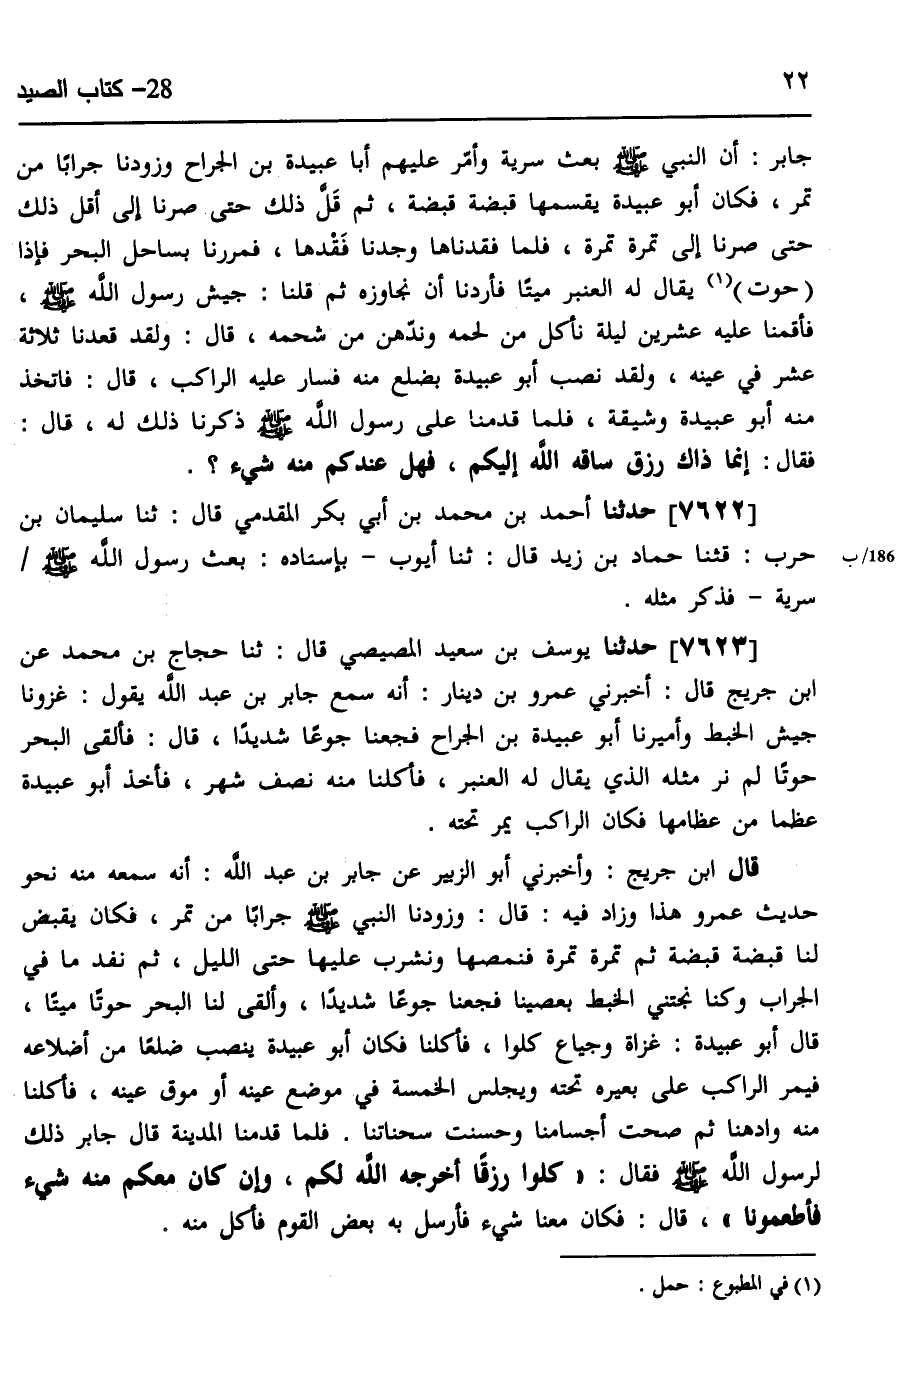 ٢٢
28- كتاب الصيد
جابر : أن النبي ﷺ بعث سرية وأمّر عليهم أبا عبيدة بن الجراح وزودنا جرابًا من
تمر ، فكان أبو عبيدة يقسمها قبضة قبضة ، ثم قَلَّ ذلك حتى صرنا إلى أقل ذلك
حتى صرنا إلى تمرة تمرة ، فلما فقدناها وجدنا فَقْدها ، فمررنا بساحل البحر فإذا
(حوت)(١) يقال له العنبر ميتًا فأردنا أن نجاوزه ثم قلنا : جيش رسول اللَّه ﷺ ،
فأقمنا عليه عشرين ليلة نأكل من لحمه وندّهن من شحمه ، قال : ولقد قعدنا ثلاثة
عشر في عينه ، ولقد نصب أبو عبيدة بضلع منه فسار عليه الراكب ، قال : فاتخذ
منه أبو عبيدة وشيقة ، فلما قدمنا على رسول اللَّه ﷺ ذكرنا ذلك له ، قال :
فقال : إنما ذاك رزق ساقه اللَّه إليكم ، فهل عندكم منه شيء ؟ .
[٧٦٢٢] حدثنا أحمد بن محمد بن أبي بكر المقدمي قال : ثنا سليمان بن
حرب : قثنا حماد بن زيد قال : ثنا أيوب - بإسناده : بعث رسول اللَّه ﷺ /
186/ ب
سرية - فذكر مثله .
[٧٦٢٣] حدثنا يوسف بن سعيد المصيصي قال : ثنا حجاج بن محمد عن
ابن جريج قال : أخبرني عمرو بن دينار : أنه سمع جابر بن عبد اللَّه يقول : غزونا
جيش الخبط وأميرنا أبو عبيدة بن الجراح فجعنا جوعًا شديدًا ، قال : فألقى البحر
حوتًا لم نر مثله الذي يقال له العنبر ، فأكلنا منه نصف شهر ، فأخذ أبو عبيدة
عظما من عظامها فكان الراكب يمر تحته .
قال ابن جريج : وأخبرني أبو الزبير عن جابر بن عبد اللَّه : أنه سمعه منه نحو
حديث عمرو هذا وزاد فيه : قال : وزودنا النبي ﷺ جرابًا من تمر ، فكان يقبض
لنا قبضة قبضة ثم تمرة تمرة فنمصها ونشرب عليها حتى الليل ، ثم نفد ما في
الجراب وكنا نجتني الخبط بعصينا فجعنا جوعًا شديدًا ، وألقى لنا البحر حوتًا ميتًا ،
قال أبو عبيدة : غزاة وجياع كلوا ، فأكلنا فكان أبو عبيدة ينصب ضلعًا من أضلاعه
فيمر الراكب على بعيره تحته ويجلس الخمسة في موضع عينه أو موق عينه ، فأكلنا
منه وادهنا ثم صحت أجسامنا وحسنت سحناتنا . فلما قدمنا المدينة قال جابر ذلك
لرسول اللَّه ﷺ فقال : « كلوا رزقًا أخرجه اللَّه لكم ، وإن كان معكم منه شيء
فأطعمونا » ، قال : فكان معنا شيء فأرسل به بعض القوم فأكل منه .
(١) في المطبوع : حمل .